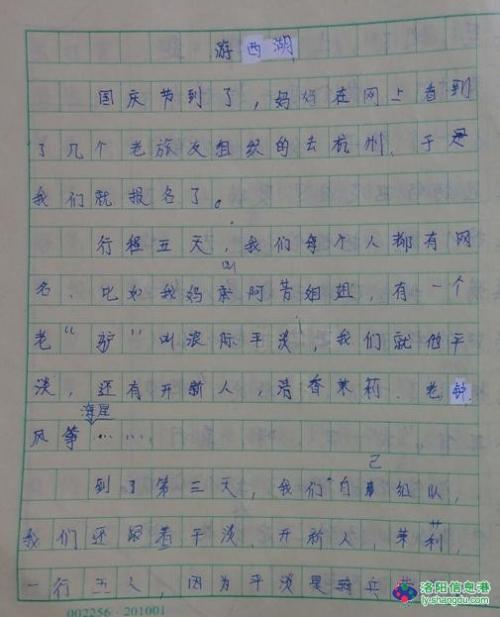 游西湖
国庆节到了,妈妈在网上看到
了几个老旅友组织的去杭州、于是
我们就报名了。
行程五天,我们每个人都有网
名、比如我妈叫阿昔姐姐,有一个
老“驴”叫浪际平淡,我们就他平
淡,还有开新人,清香茉莉、老钟
海星
风筝……
到了第三天,我们自己组队,
我们还跟着平淡、开新人,茉莉,
一行五人,因为平淡是骑兵
洛阳信息港
ly.shangdu.com
002256·201001